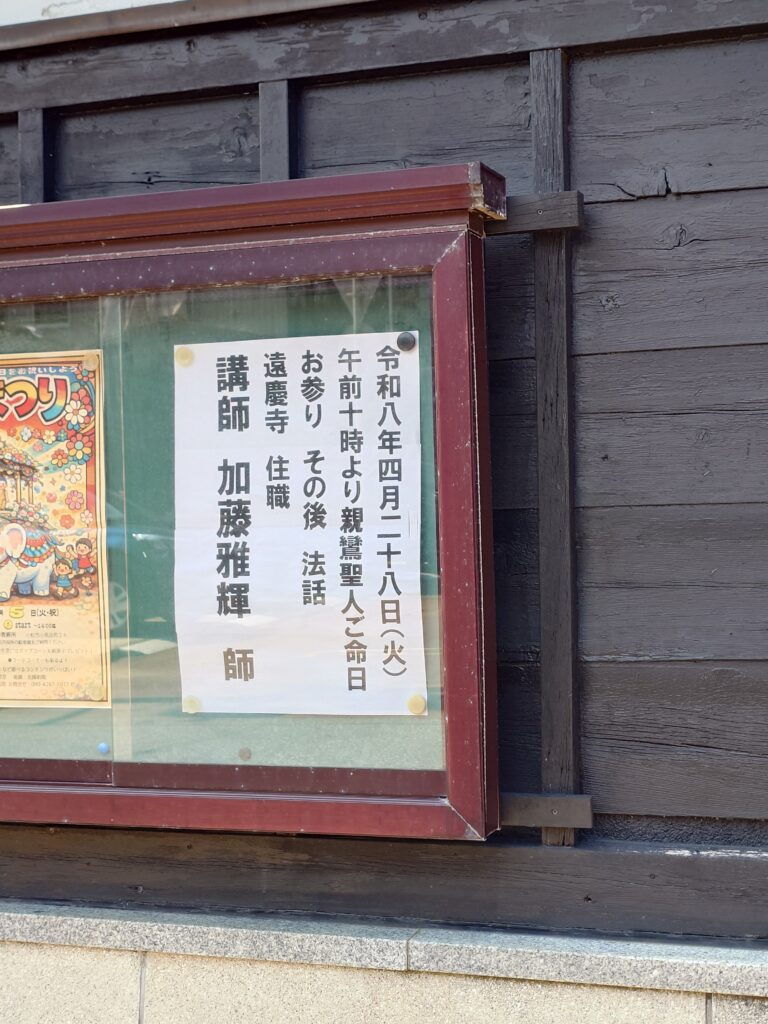 令和八年四月二十八日(火)
午前十時より親鸞聖人ご命日
お参り その後 法話
遠慶寺 住職
講師 加藤雅輝 師
まつり
5日(火・祝)
start